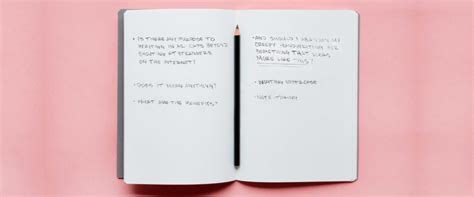 • IS THERE ANY PURPOSE TO
WRITING IN ALL CAPS BEYOND
SHOUTING AT STRANGERS
ON THE INTERNET?
• DOES IT MEAN ANYTHING?
• WHAT ARE THE BENEFITS?
• AND SHOULD I MY
CREEPY HANDWRITING FOR
SOMETHING THAT LOOKS
MORE LIKE THIS?
• WRITING UPPERCASE
• NOTE TAKING